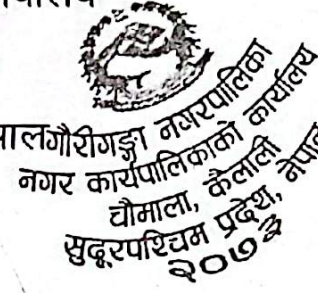 ालगौरीगङ्गा नगरपालिका
नगर कार्यपालिकाको कार्यालय
चौमाला, कैलाली
सुदूरपश्चिम प्रदेश, नेपाल
२०७३